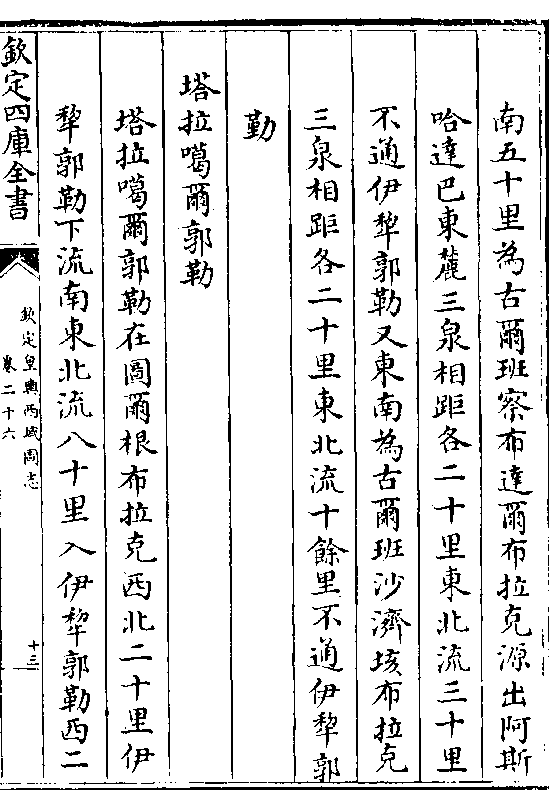 南五十里為古爾班察布達爾布拉克源出阿斯
哈達巴東麓三泉相距各二十里東北流三十里
不通伊犂郭勒又東南為古爾班沙濟垓布拉克
三泉相距各二十里東北流十餘里不通伊犂郭
勒
塔拉噶爾郭勒
塔拉噶爾郭勒在圖爾根布拉克西北二十里伊
犂郭勒下流南東北流八十里入伊犂郭勒西二
欽定四庫全書
欽定皇輿西域圖志
卷二十六
十三